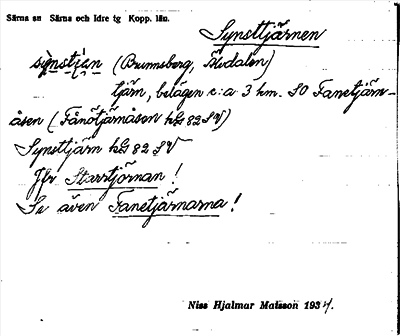 Särna sn Särna och Idre tg Kopp. län.
Synsttjärnen
synstjan (Brunnsberg, Älvdalen)
tjärn, belägen c:a 3 km. SO Fanetjärn-
åsen (Fånötjärnåsen hkG 82 SV)
Synsttjärn hkG 82 SV
Jfr Starrtjärnan!
Se även Fanetjärnarna!
Niss Hjalmar Matsson 1934.